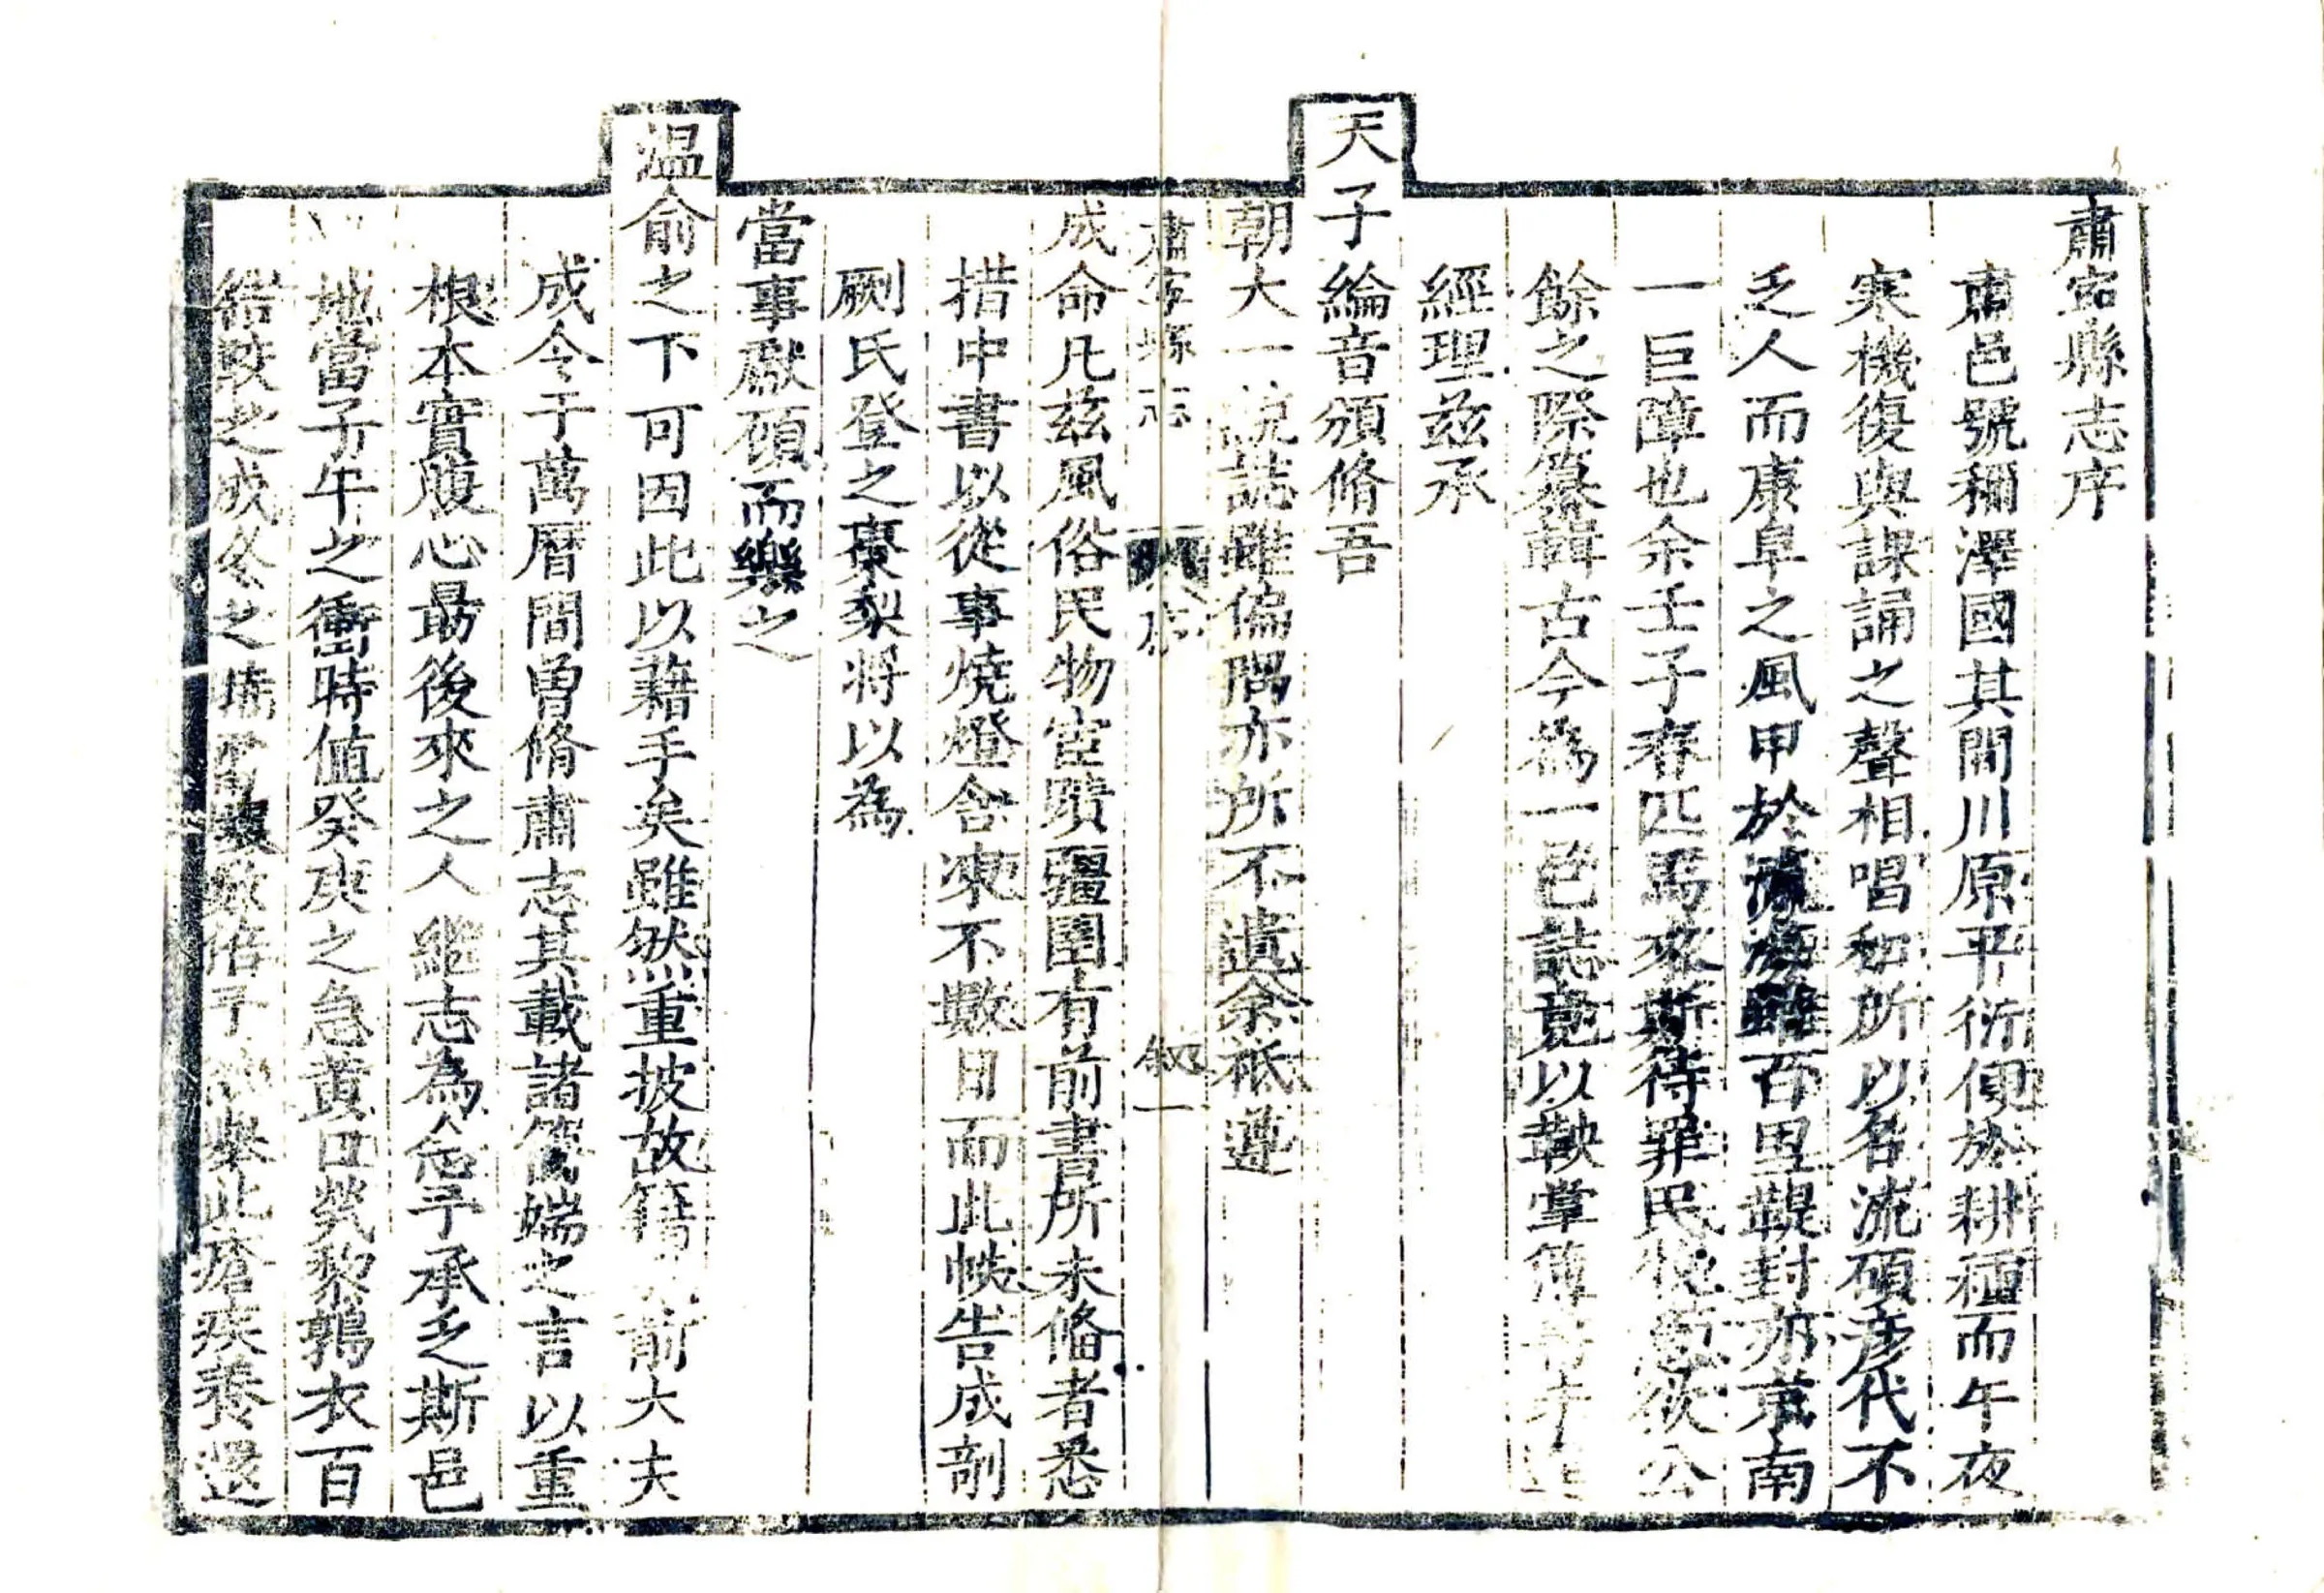 肅寕縣志序
肅邑號稱澤國其間川原平衍便於耕種而午夜
寒機復與課誦之聲相唱和所以名流碩彥代不
乏人而康阜之風甲於瀛海雖百里鞮封亦京南
一巨障也余壬子春匹馬來斯待罪民牧意欲公
餘之際纂輯古今為一邑誌竟以鞅掌簿書
經理兹承
天子綸音頒脩吾
朝大一統誌雖偏隅亦所不遺余祗遵
肅寕縣志
叙一
成命凡兹風俗民物宦蹟疆圉有前書所未備者悉
措中書以從事燒燈舍凍不數日而此帙告成剞
劂氏登之棗梨將以為
當事獻碩而樂之
温俞之下可因此以藉手矣雖然重披故籍前大夫
成令于萬曆間曽脩肅志其載諸簡端之言以重
根本實腹心最後來之人繼志為念予承乏斯邑
地當子午之衝時值癸庚之急黄口煢黎鶉衣百
結較之成令之時
數倍予
此瘡疾養還